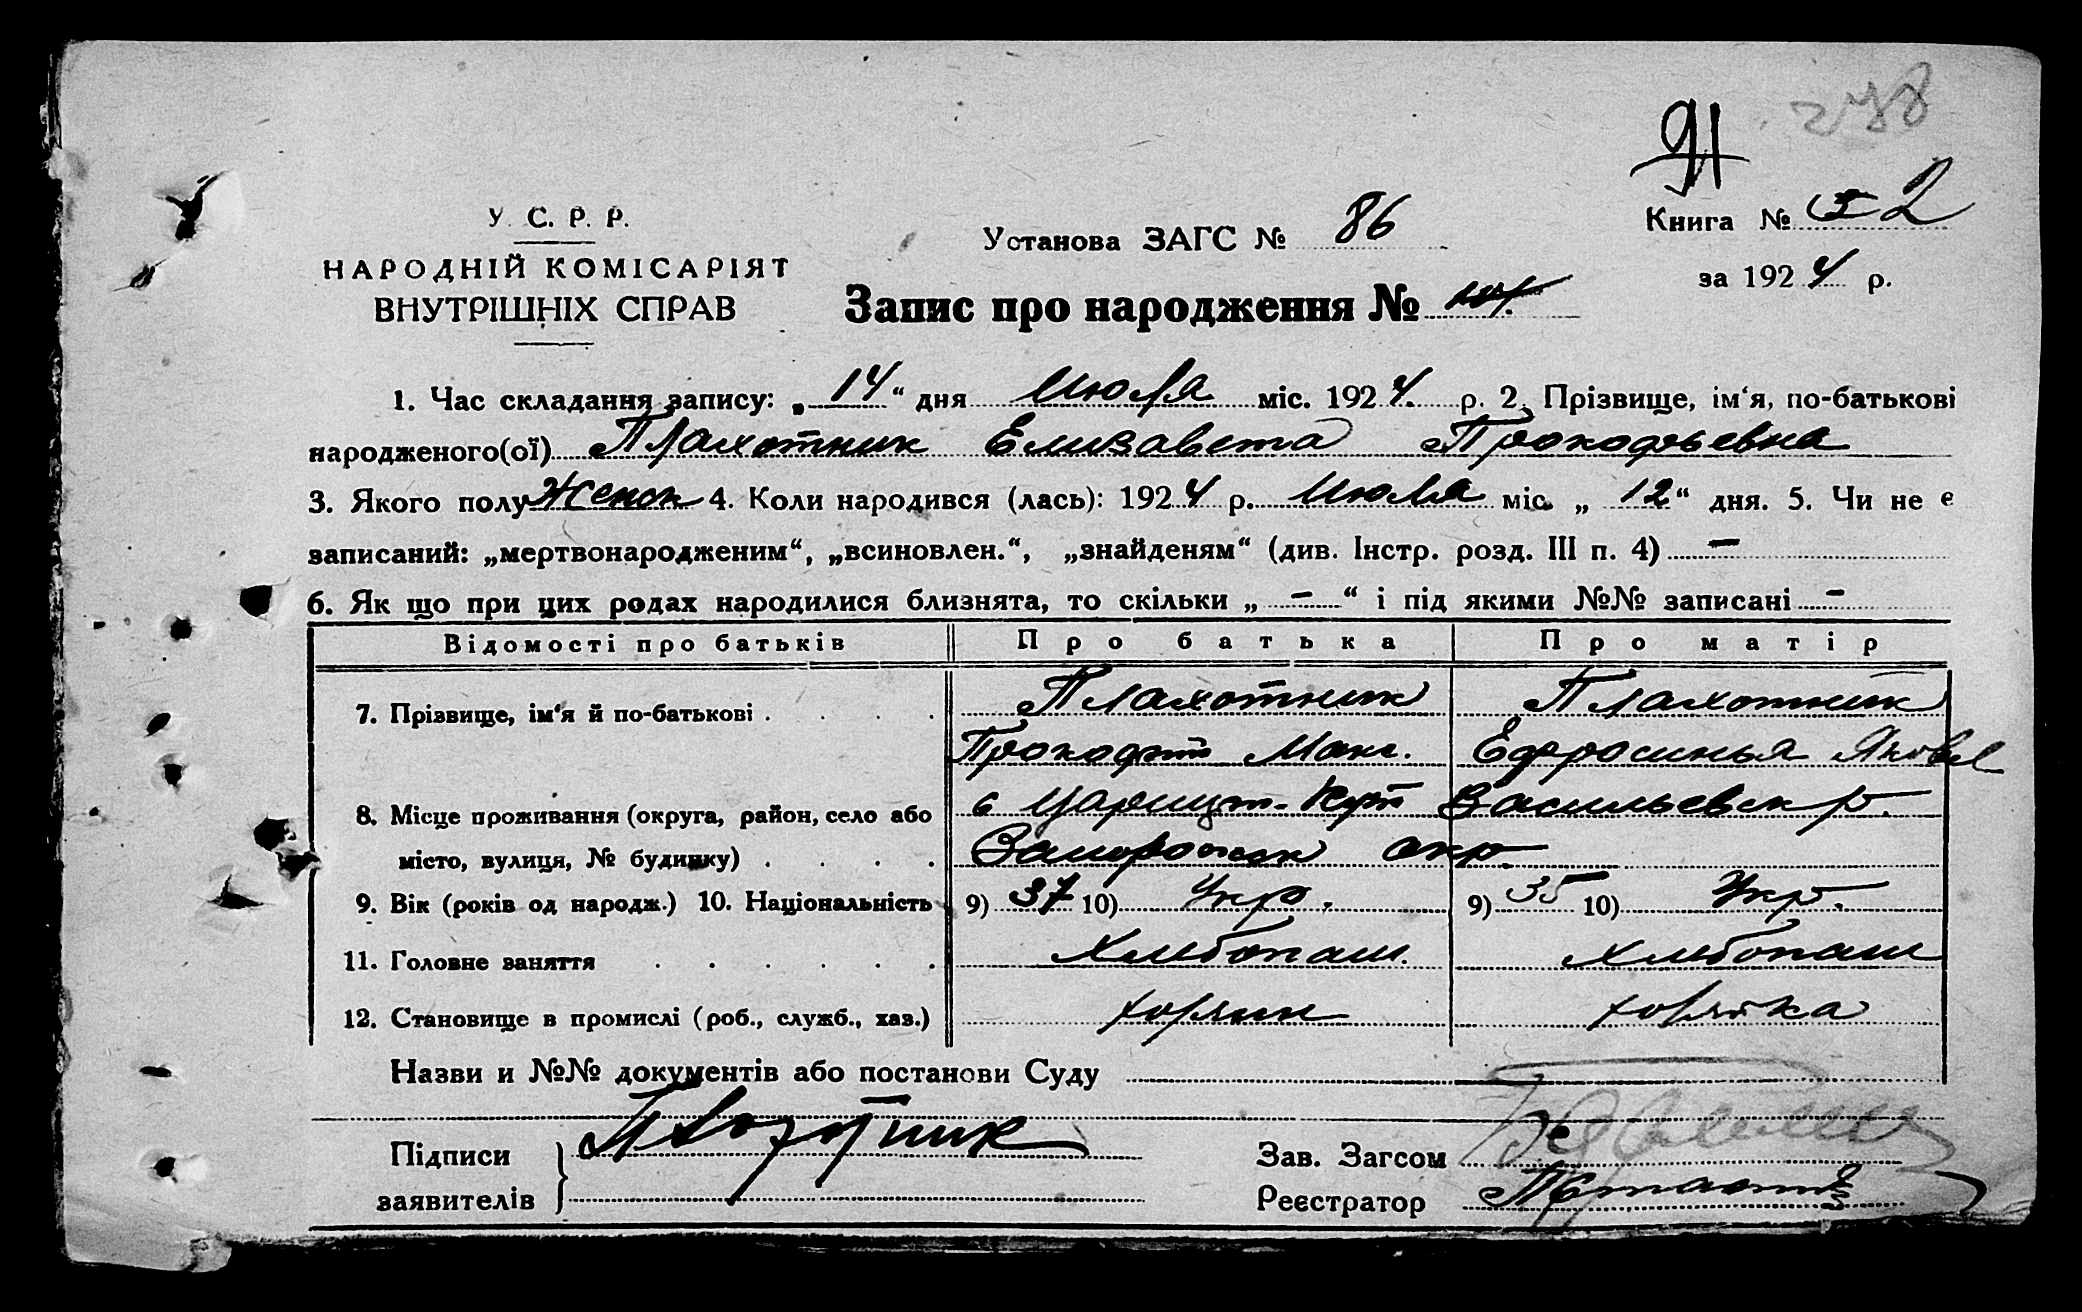 278
91
У. С. Р. Р.
НАРОДНІЙ КОМІСАРІЯТ
ВНУТРІШНІХ СПРАВ
Установа ЗАГС № 86
Книга № 2
за 1924 р.
Запис про народження №
1. Час складання запису: „14“ дня Июля міс. 1924 р. 2. Прізвище, ім'я, по-батькові
народженого(ої) Плахотник Елизавета Прокофьевна
3. Якого полу Женск 4. Коли народився (лась): 1924 р. Июля міс. „12“ дня. 5. Чи не є
записаний: „мертвонародженим“, „всиновлен.“, „знайденям“ (див. Інстр. розд. III п. 4) —
6. Як що при цих родах народилися близнята, то скільки „ — “ і під якими №№ записані —
Відомості про батьків Про батька Про матір
7. Прізвище, ім'я й по-батькові Плахотник Плахотник
Прокофий Макс. Ефросинья Яковл
8. Місце проживання (округа, район, село або с Царицын-Кут Васильевск р.
місто, вулиця, № будинку) Запорожск окр.
9. Вік (років од народж.) 10. Національність 9) 37 10) Укр. 9) 35 10) Укр.
11. Головне заняття Хлебопаш. Хлебопаш
12. Становище в промислі (роб., служб., хаз.) хозяин хозяйка
Назви и №№ документів або постанови Суду
Підписи Плахотник Зав. Загсом
заявителів Реєстратор